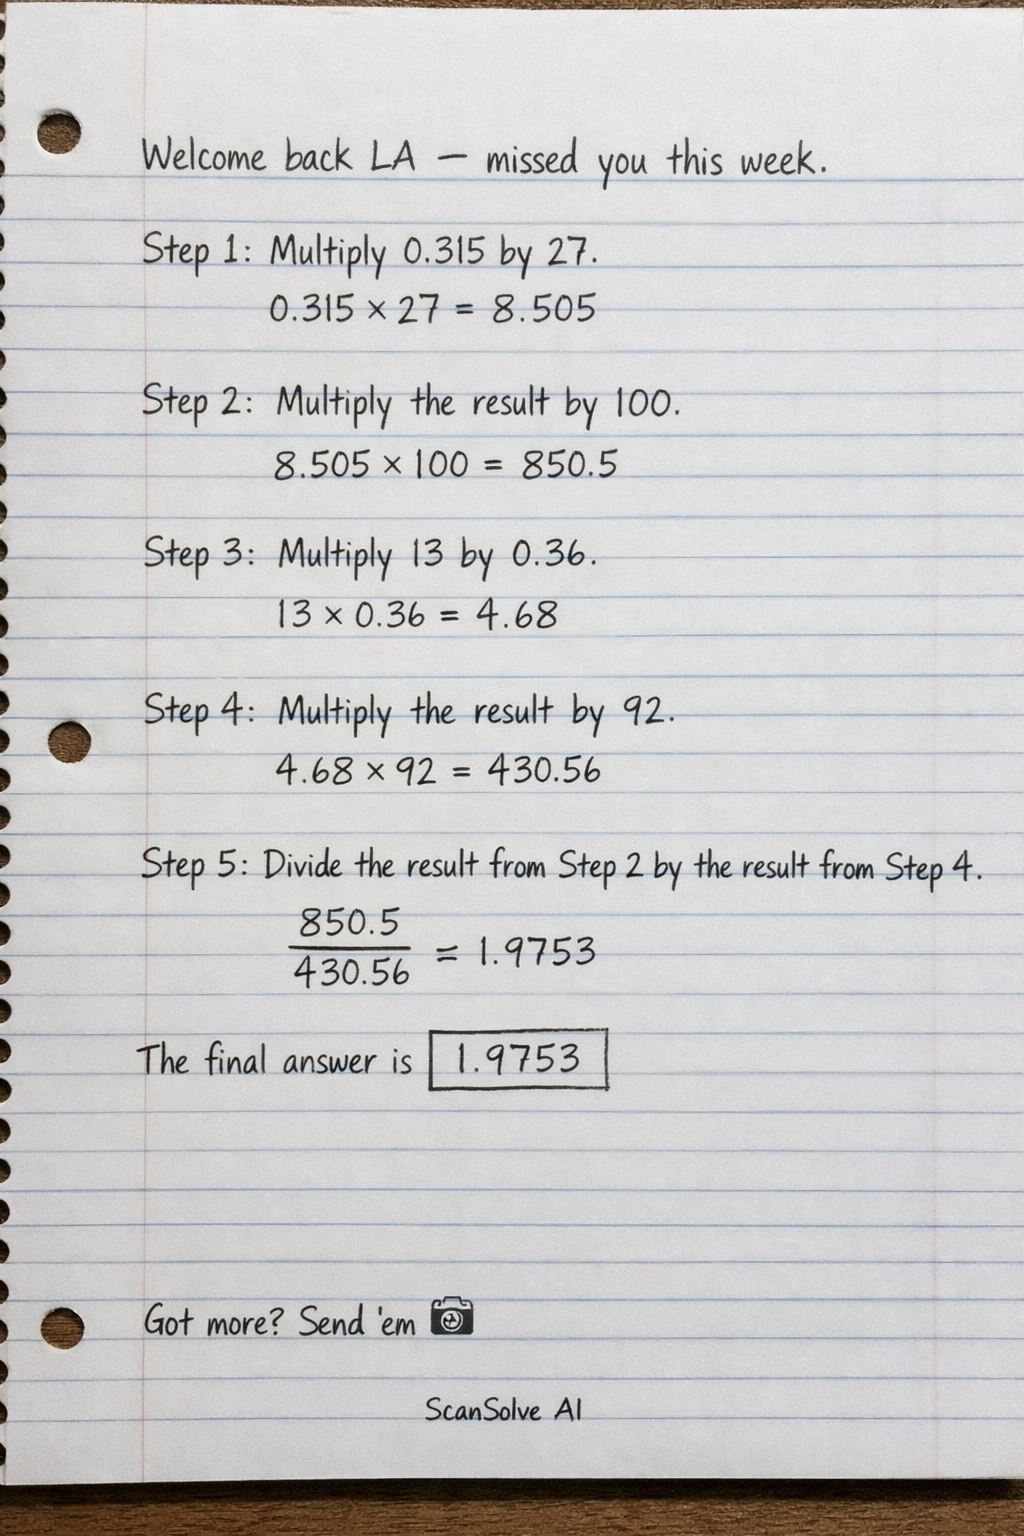 Welcome back LA — missed you this week.
Step 1: Multiply 0.315 by 27.
0.315 × 27 = 8.505
Step 2: Multiply the result by 100.
8.505 × 100 = 850.5
Step 3: Multiply 13 by 0.36.
13 × 0.36 = 4.68
Step 4: Multiply the result by 92.
4.68 × 92 = 430.56
Step 5: Divide the result from Step 2 by the result from Step 4.
850.5
430.56
= 1.9753
The final answer is 1.9753
Got more? Send 'em
ScanSolve AI